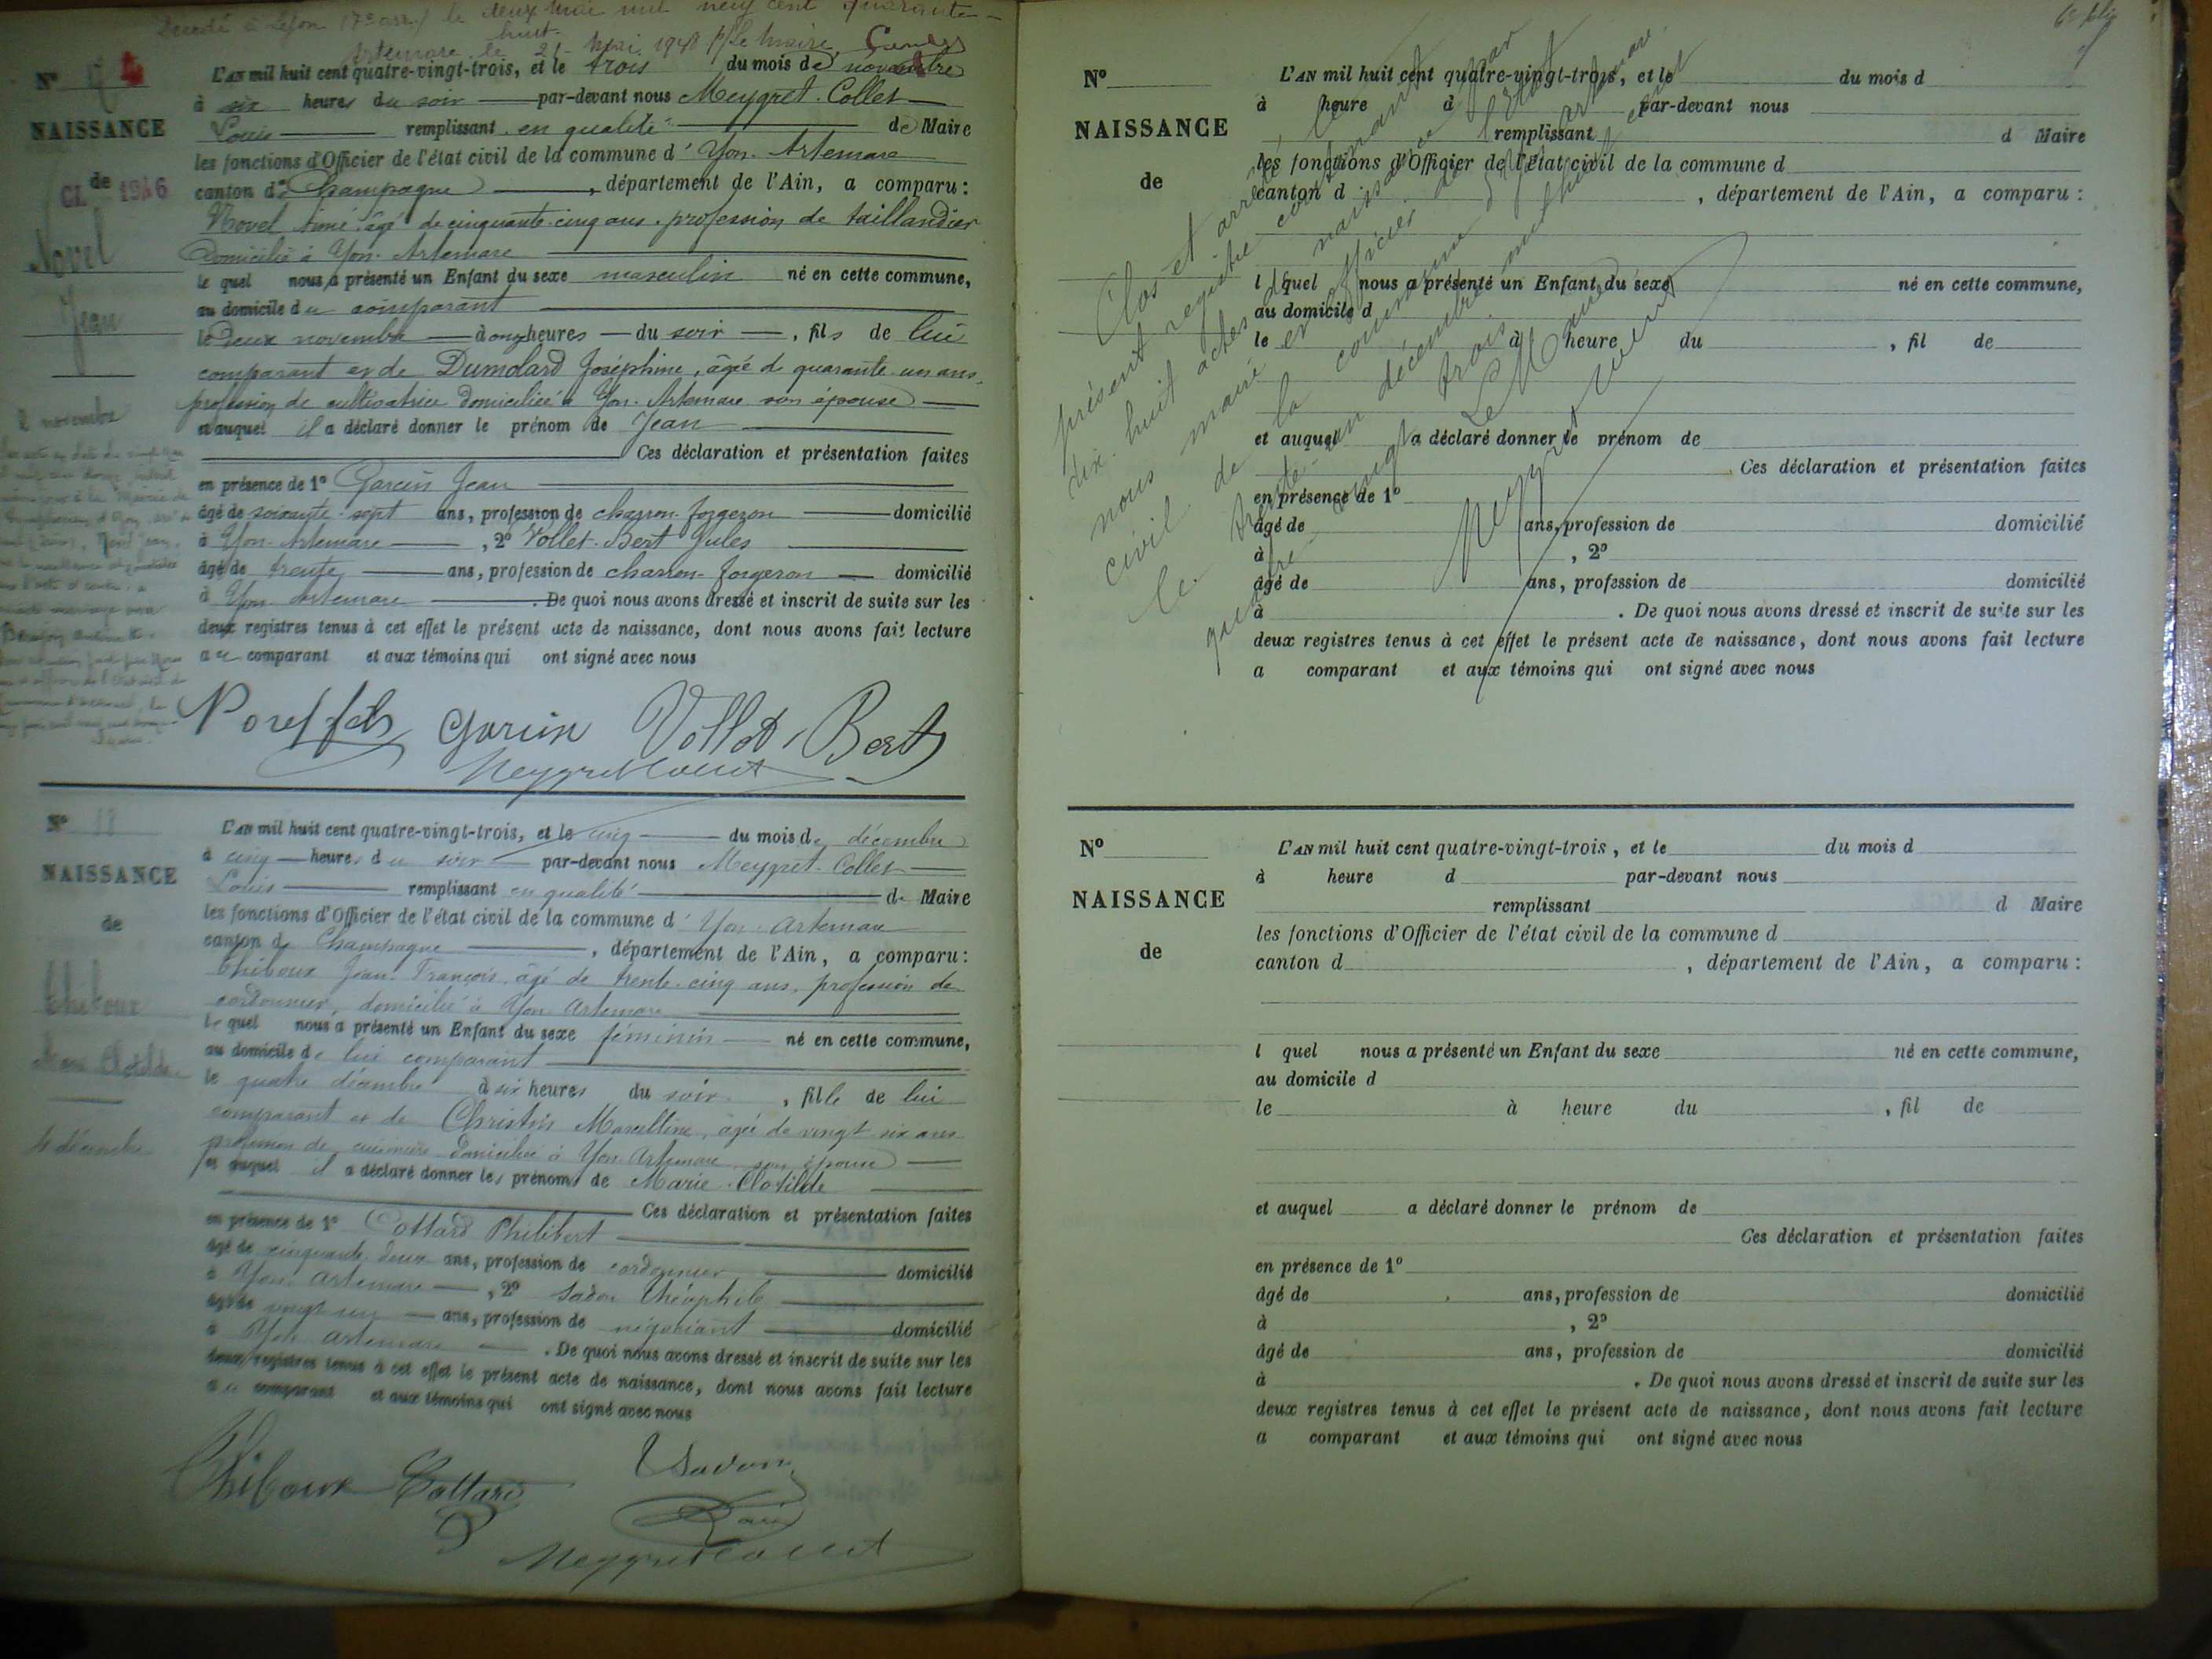 Décédé à Lyon (7e arr.) le deux mai mil neuf cent quarante-
huit.
Artemare le 21 Mai 1948 P/Le Maire
Nº
NAISSANCE
de
CL 1946
Novel
Jean
2 novembre
L'AN mil huit cent quatre-vingt-trois, et le trois du mois de novembre
à six heures du soir par-devant nous Meygret-Collet
Louis remplissant en qualité de Maire
les fonctions d'Officier de l'état civil de la commune d' Yon-Artemare
canton de Champagne, département de l'Ain, a comparu:
Novel Aimé âgé de cinquante-cinq ans, profession de taillandier
Domicilié à Yon-Artemare
le quel nous a présenté un Enfant du sexe masculin né en cette commune,
au domicile du comparant
le deux novembre à onze heures du soir, fils de lui
comparant et de Dumolard Joséphine, âgée de quarante un ans,
profession de cultivatrice domiciliée à Yon-Artemare son épouse
et auquel il a déclaré donner le prénom de Jean
Ces déclaration et présentation faites
en présence de 1º Garcin Jean
âgé de soixante-sept ans, profession de charron-forgeron domicilié
à Yon-Artemare, 2º Vollet-Bert Jules
âgé de trente ans, profession de charron-forgeron domicilié
à Yon-Artemare. De quoi nous avons dressé et inscrit de suite sur les
deux registres tenus à cet effet le présent acte de naissance, dont nous avons fait lecture
au comparant et aux témoins qui ont signé avec nous
Novel fils Garcin Vollet-Bert
Meygret Collet
Nº 18
NAISSANCE
de
Thiboux
Marie Clotilde
4 décembre
L'AN mil huit cent quatre-vingt-trois, et le cinq du mois de décembre
à cinq heures du soir par-devant nous Meygret-Collet
Louis remplissant en qualité de Maire
les fonctions d'Officier de l'état civil de la commune d' Yon-Artemare
canton de Champagne, département de l'Ain, a comparu:
Thiboux Jean-François âgé de trente-cinq ans, profession de
cordonnier, domicilié à Yon-Artemare
le quel nous a présenté un Enfant du sexe féminin né en cette commune,
au domicile de lui comparant
le quatre décembre à six heures du soir, fille de lui
comparant et de Christin Marcelline, âgée de vingt six ans
profession de cuisinière domiciliée à Yon-Artemare son épouse
et auquel il a déclaré donner les prénoms de Marie-Clotilde
Ces déclaration et présentation faites
en présence de 1º Cottard Philibert
âgé de cinquante deux ans, profession de cordonnier domicilié
à Yon-Artemare, 2º Savon Théophile
âgé de vingt un ans, profession de négociant domicilié
à Yon-Artemare. De quoi nous avons dressé et inscrit de suite sur les
deux registres tenus à cet effet le présent acte de naissance, dont nous avons fait lecture
au comparant et aux témoins qui ont signé avec nous
Thiboux Cottard Savon
Meygret Collet
Nº
NAISSANCE
de
L'AN mil huit cent quatre-vingt-trois, et le du mois d
à heure d par-devant nous
remplissant d Maire
les fonctions d'Officier de l'état civil de la commune d
canton d, département de l'Ain, a comparu:
l quel nous a présenté un Enfant du sexe né en cette commune,
au domicile d
le à heure du, fil de
et auquel a déclaré donner le prénom de
Ces déclaration et présentation faites
en présence de 1º
âgé de ans, profession de domicilié
à, 2º
âgé de ans, profession de domicilié
à. De quoi nous avons dressé et inscrit de suite sur les
deux registres tenus à cet effet le présent acte de naissance, dont nous avons fait lecture
a comparant et aux témoins qui ont signé avec nous
Clos et arrêté le
présent registre contenant
dix-huit actes de naissance par
nous maire et officier de l'état
civil de la commune d'Yon-Artemare
le trente-un décembre mil huit cent
quatre-vingt trois
Le Maire
Meygret Collet
Nº
NAISSANCE
de
L'AN mil huit cent quatre-vingt-trois, et le du mois d
à heure d par-devant nous
remplissant d Maire
les fonctions d'Officier de l'état civil de la commune d
canton d, département de l'Ain, a comparu:
l quel nous a présenté un Enfant du sexe né en cette commune,
au domicile d
le à heure du, fil de
et auquel a déclaré donner le prénom de
Ces déclaration et présentation faites
en présence de 1º
âgé de ans, profession de domicilié
à, 2º
âgé de ans, profession de domicilié
à. De quoi nous avons dressé et inscrit de suite sur les
deux registres tenus à cet effet le présent acte de naissance, dont nous avons fait lecture
a comparant et aux témoins qui ont signé avec nous